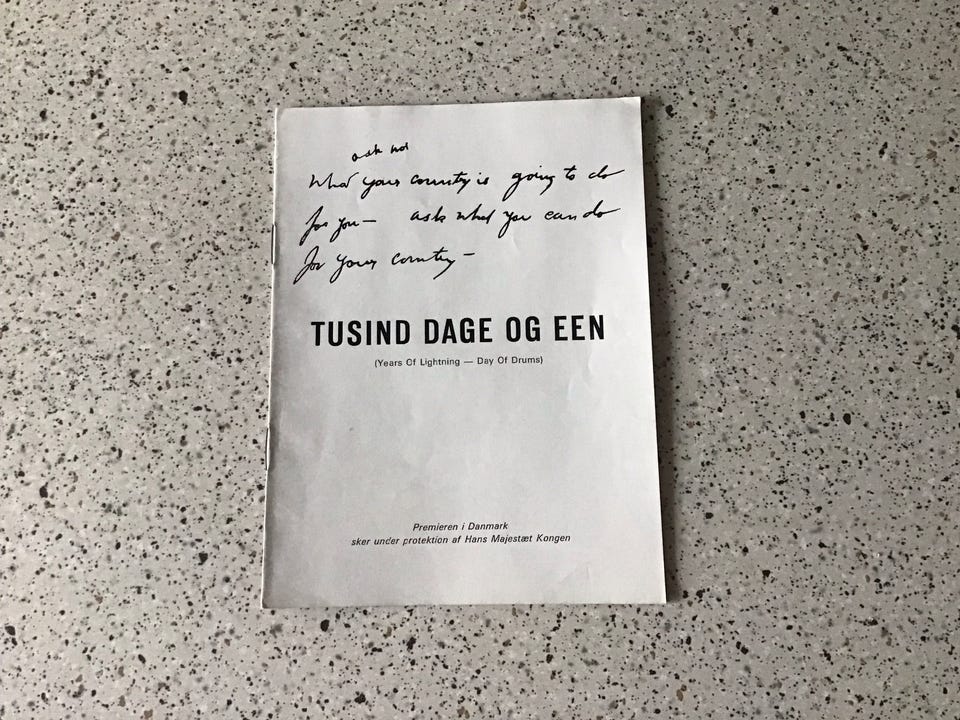 ask not
what your country is going to do
for you — ask what you can do
for your country —
TUSIND DAGE OG EEN
(Years Of Lightning — Day Of Drums)
Premieren i Danmark
sker under protektion af Hans Majestæt Kongen